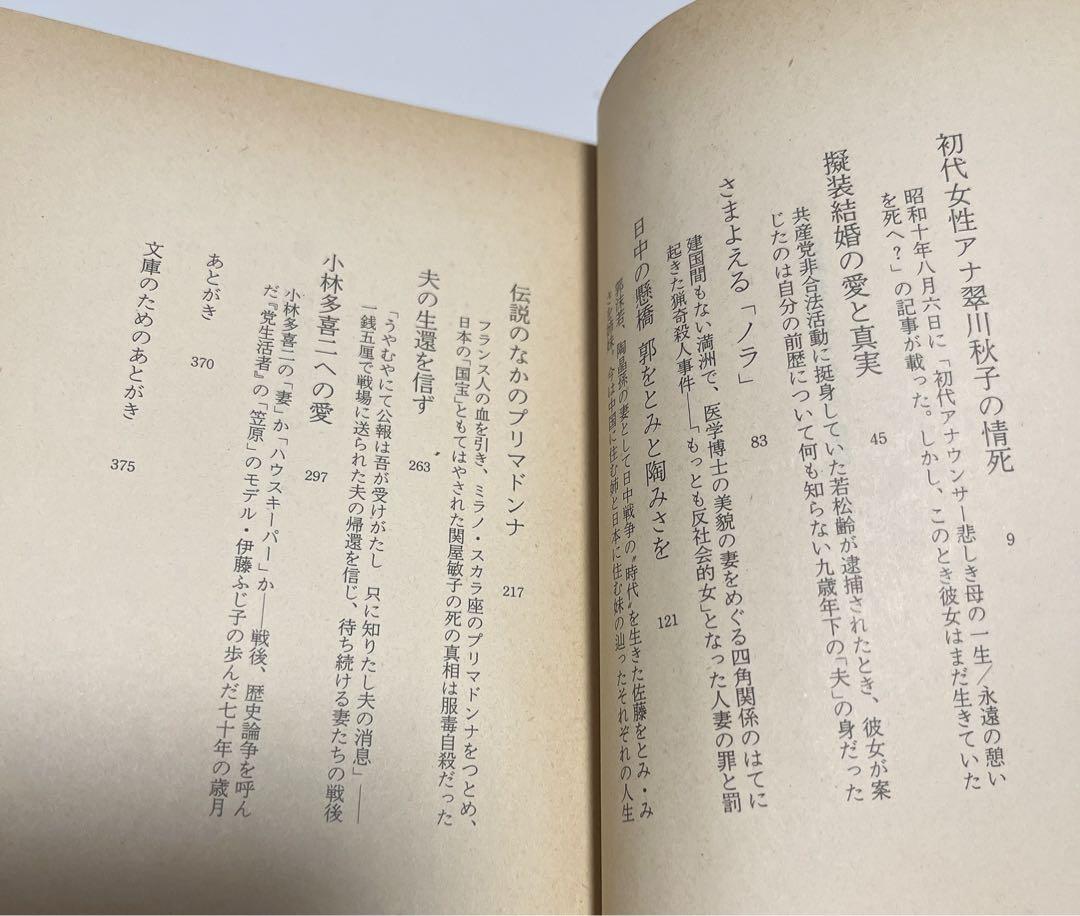 初代女性アナ 翠川秋子の情死
9
昭和十年八月六日に「初代アナウンサー悲しき母の一生/永遠の憩い
を死へ?」の記事が載った。しかし、このとき彼女はまだ生きていた
擬装結婚の愛と真実
45
共産党非合法活動に挺身していた若松齢が逮捕されたとき、彼女が案
じたのは自分の前歴について何も知らない九歳年下の「夫」の身だった
さまよえる「ノラ」
83
建国間もない満洲で、医学博士の美貌の妻をめぐる四角関係のはてに
起きた猟奇殺人事件──「もっとも反社会的女」となった人妻の罪と罰
日中の懸橋 郭をとみと陶みさを
121
郭沫若、陶晶孫の妻として日中戦争の〝時代〟を生きた佐藤をとみ・み
さを姉妹。今は中国に住む姉と日本に住む妹の辿ったそれぞれの人生
伝説のなかのプリマドンナ
217
フランス人の血を引き、ミラノ・スカラ座のプリマドンナをつとめ、
日本の「国宝」ともてはやされた関屋敏子の死の真相は服毒自殺だった
夫の生還を信ず
263
「うやむやにて公報は吾が受けがたし 只に知りたし夫の消息」──
一銭五厘で戦場に送られた夫の帰還を信じ、待ち続ける妻たちの戦後
小林多喜二への愛
297
小林多喜二の「妻」か「ハウスキーパー」か──戦後、歴史論争を呼ん
だ『党生活者』の「笠原」のモデル・伊藤ふじ子の歩んだ七十年の歳月
あとがき
370
文庫のためのあとがき
375